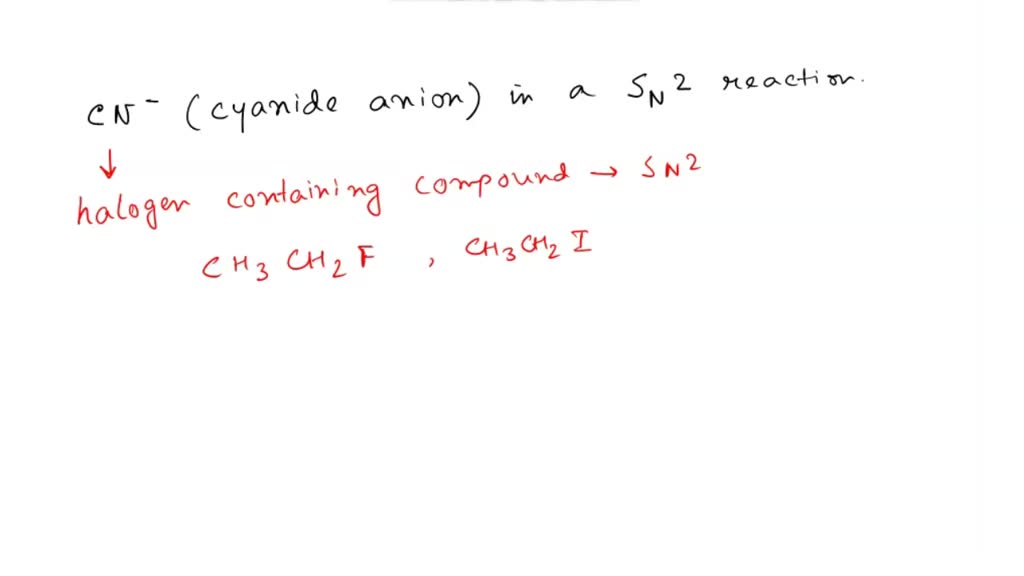 CN⁻ (cyanide anion) in a SN2 reaction.
↓
halogen containing compound → SN2
CH3 CH2 F , CH3 CH2 I